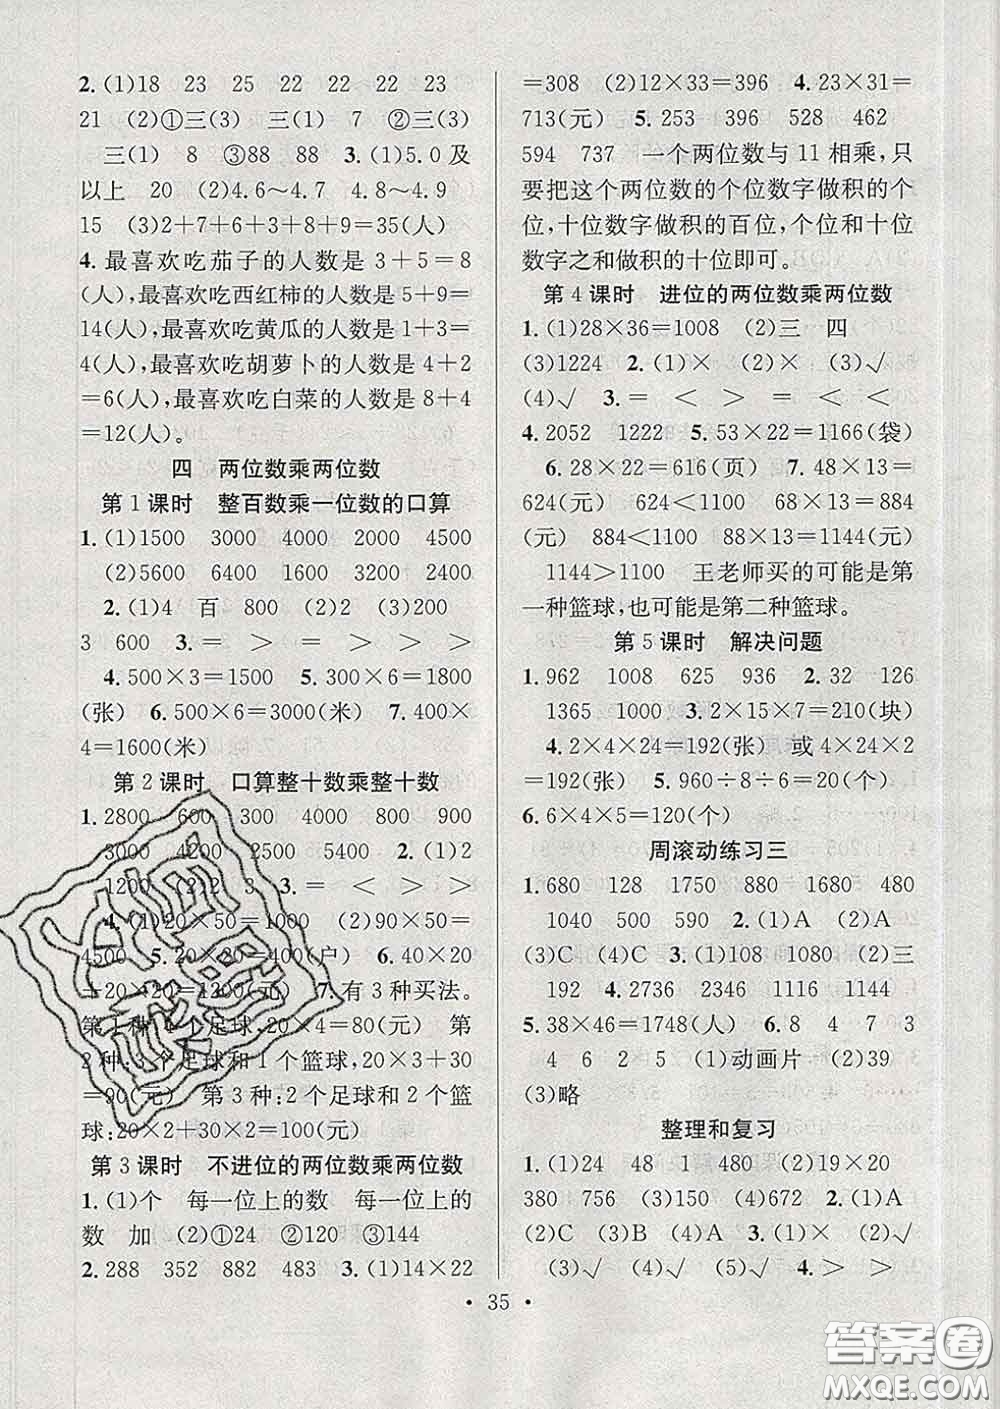 2.(1)18 23 25 22 22 22 23
21 (2)①三(3) 三(1) 7 ②三(3)
三(1) 8 ③88 88 3.(1)5.0及
以上 20 (2)4.6～4.7 4.8～4.9
15 (3)2+7+6+3+8+9=35(人)
4.最喜欢吃茄子的人数是3+5=8
(人),最喜欢吃西红柿的人数是5+9=
14(人),最喜欢吃黄瓜的人数是1+3=
4(人),最喜欢吃胡萝卜的人数是4+2
=6(人),最喜欢吃白菜的人数是8+4
=12(人)。
四 两位数乘两位数
第1课时 整百数乘一位数的口算
1.(1)1500 3000 4000 2000 4500
(2)5600 6400 1600 3200 2400
2.(1)4 百 800 (2)2 (3)200
3 600 3.= > > = > >
4.500×3=1500 5.500×3=1500
(张) 6.500×6=3000(米) 7.400×
4=1600(米)
第2课时 口算整十数乘整十数
1.2800 600 300 4000 800 900
3000 4200 5600 5400 2.(1)2
1200 (2)2 3 3.= < > > >
4.(1)20×50=1000 (2)90×50=
4500 5.20×20=400(户) 6.40×20
+20×20=1200(元) 7.有3种买法。
第1种:4个足球,20×4=80(元) 第
2种:3个足球和1个篮球,20×3+30
=90(元) 第3种:2个足球和2个篮
球:20×2+30×2=100(元)
第3课时 不进位的两位数乘两位数
1.(1)个 每一位上的数 每一位上的
数 加 (2)①24 ②120 ③144
2.288 352 882 483 3.(1)14×22
=308 (2)12×33=396 4.23×31=
713(元) 5.253 396 528 462
594 737 一个两位数与11相乘,只
要把这个两位数的个位数字做积的个
位,十位数字做积的百位,个位和十位
数字之和做积的十位即可。
第4课时 进位的两位数乘两位数
1.(1)28×36=1008 (2)三 四
(3)1224 2.(1)× (2)× (3)√
(4)√ 3.= < > = < <
4.2052 1222 5.53×22=1166(袋)
6.28×22=616(页) 7.48×13=
624(元) 624<1100 68×13=884
(元) 884<1100 88×13=1144(元)
1144>1100 王老师买的可能是第
一种篮球,也可能是第二种篮球。
第5课时 解决问题
1.962 1008 625 936 2.32 126
1365 1000 3.2×15×7=210(块)
4.2×4×24=192(张) 或4×24×2
=192(张) 5.960÷8÷6=20(个)
6.6×4×5=120(个)
周滚动练习三
1.680 128 1750 880 1680 480
1040 500 590 2.(1)A (2)A
(3)C (4)C 3.(1)108 1080 (2)三
192 4.2736 2346 1116 1144
5.38×46=1748(人) 6.8 4 7 3
4 6 2 5 (1)动画片 (2)39
(3)略
整理和复习
1.(1)24 48 1 480 (2)19×20
380 756 (3)150 (4)672 2.(1)A
(2)C (3)B (4)A 3.(1)× (2)√
(3)√ (4)√ (5)√ 4.> >
· 35 ·
答案圈
MXQE.COM